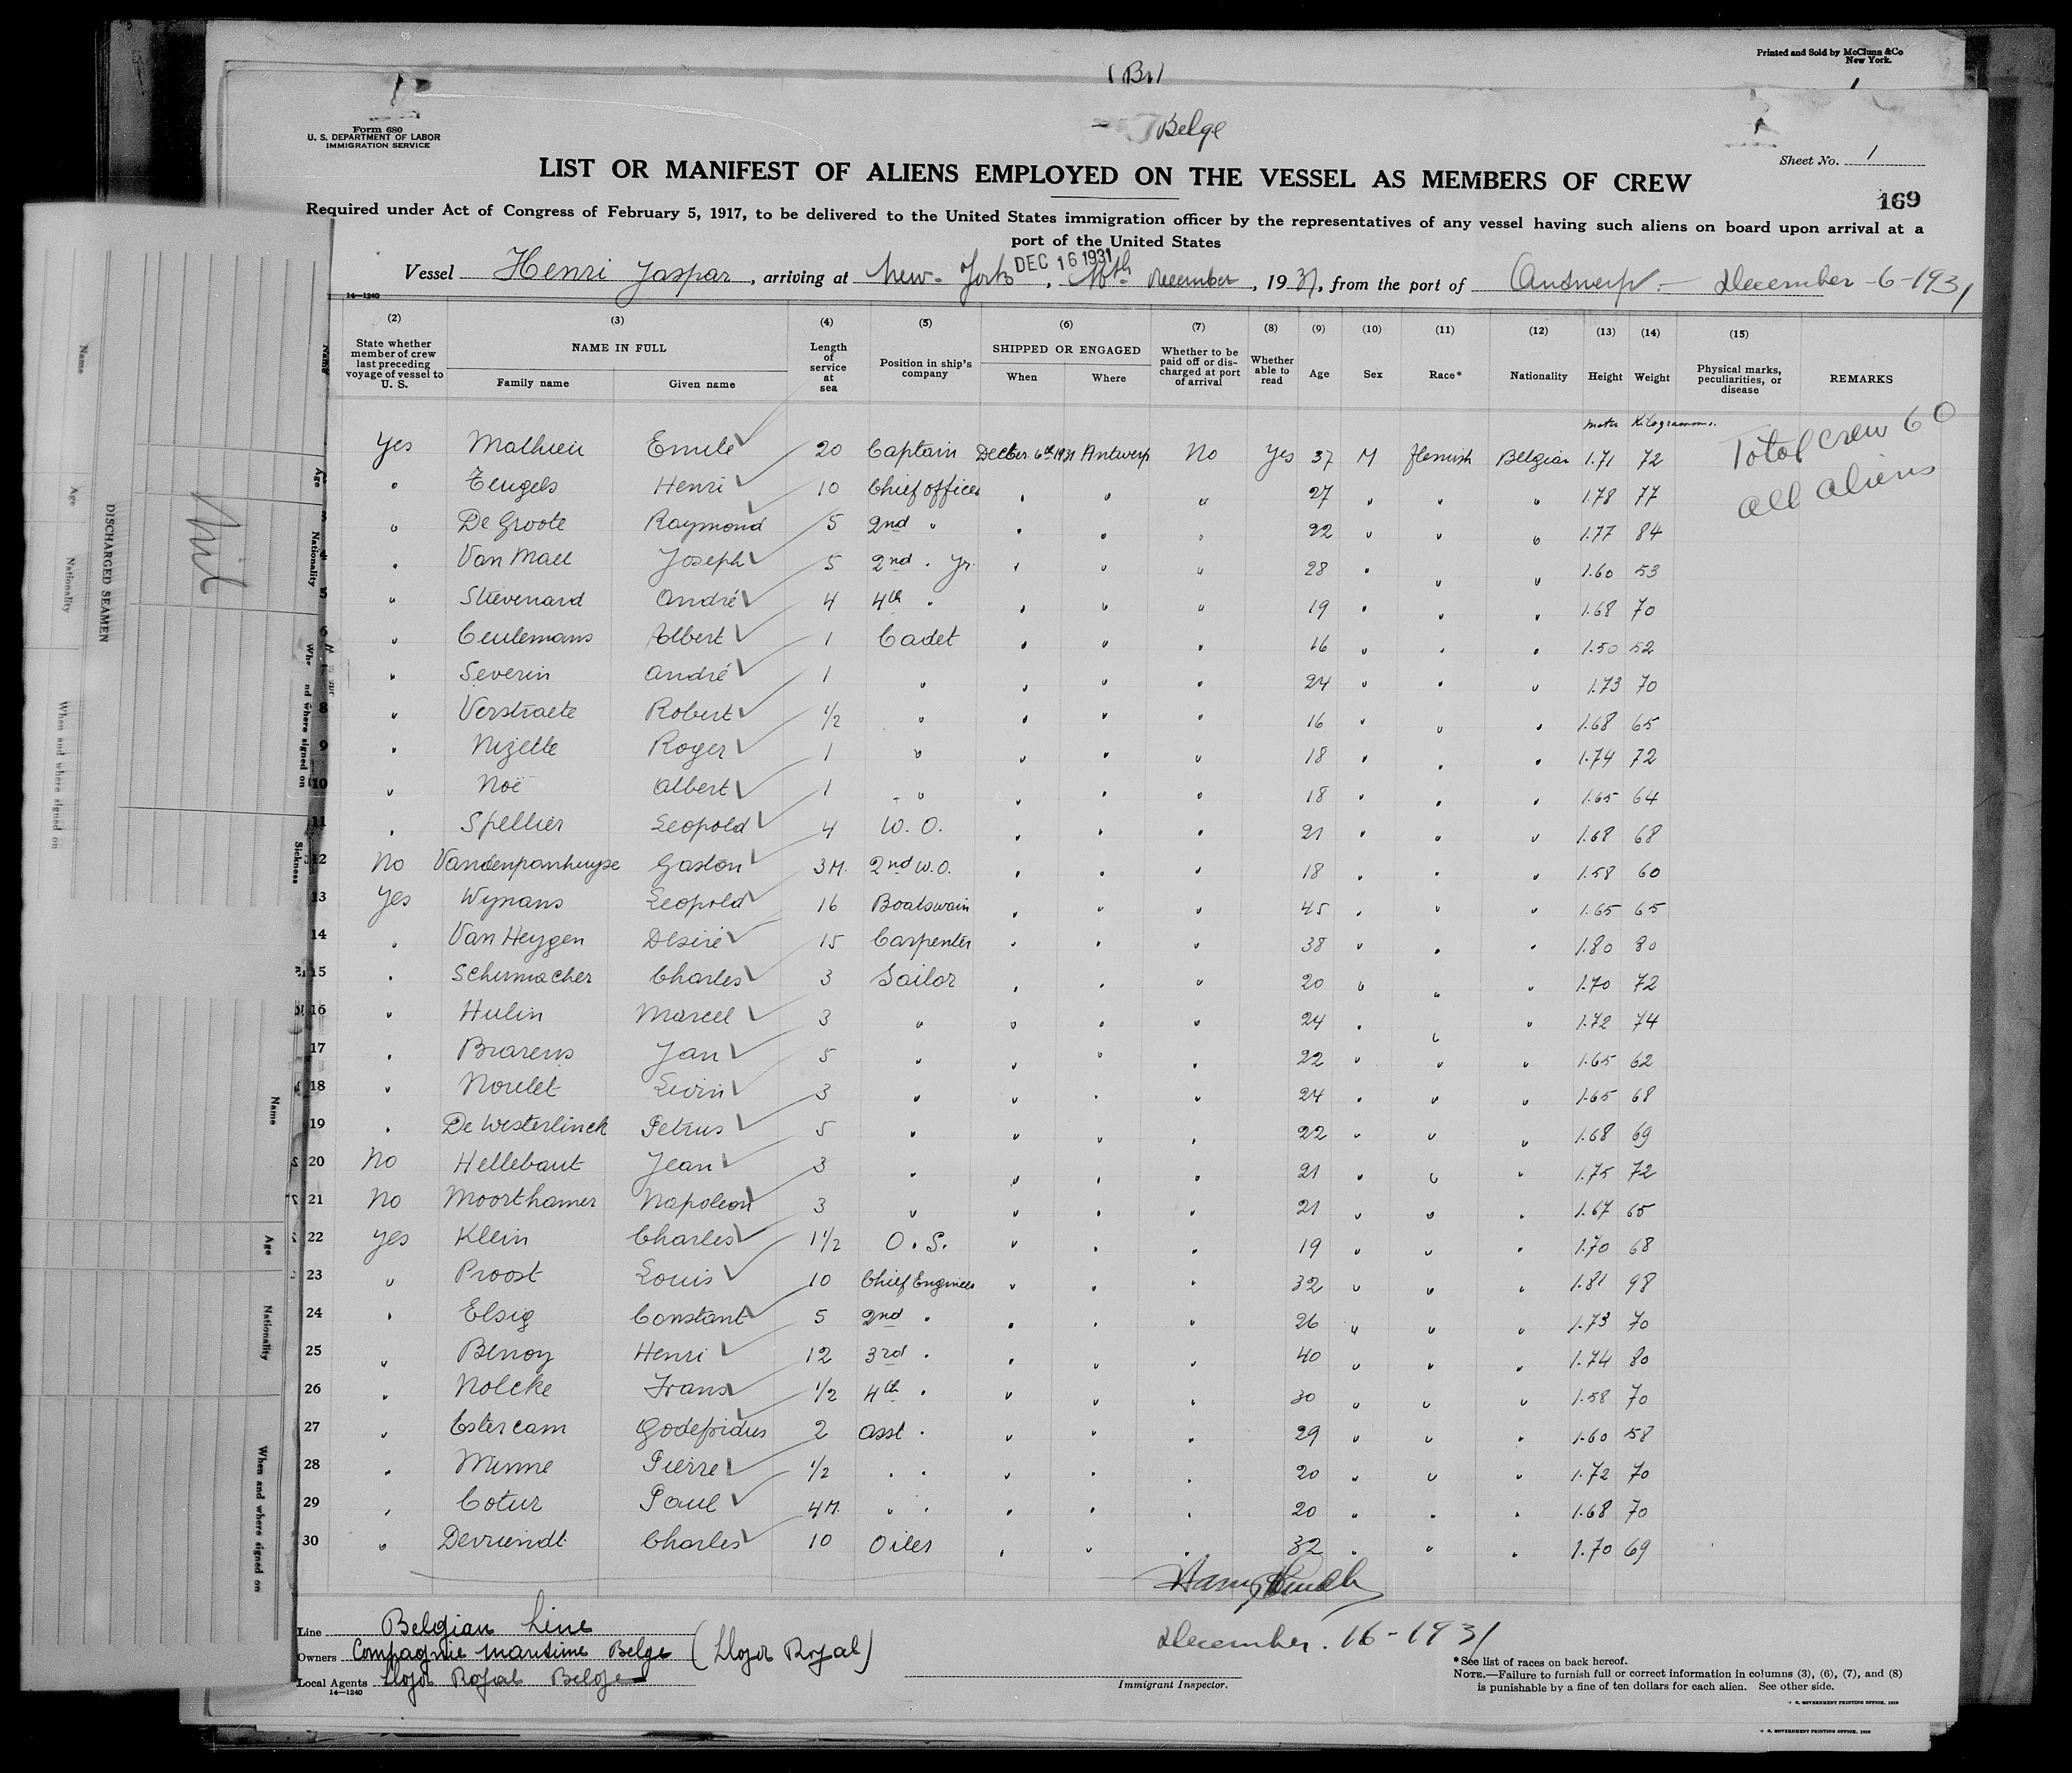 Printed and Sold by McClunn & Co
New York.
(Br)
Belge
Form 680
U. S. DEPARTMENT OF LABOR
IMMIGRATION SERVICE
Sheet No. 1
LIST OR MANIFEST OF ALIENS EMPLOYED ON THE VESSEL AS MEMBERS OF CREW
169
Required under Act of Congress of February 5, 1917, to be delivered to the United States immigration officer by the representatives of any vessel having such aliens on board upon arrival at a
port of the United States
DEC 16 1931
Vessel Henri Jaspar, arriving at New-York, 16th December, 1931, from the port of Antwerp. — December-6-1931
14—1240
(2) (3) (4) (5) (6) (7) (8) (9) (10) (11) (12) (13) (14) (15)
State whether member of crew last preceding voyage of vessel to U. S.
NAME IN FULL
Family name Given name
Length of service at sea
Position in ship's company
SHIPPED OR ENGAGED
When Where
Whether to be paid off or discharged at port of arrival
Whether able to read
Age Sex Race* Nationality Height Weight
Physical marks, peculiarities, or disease
REMARKS
meter Kilogramms.
Total crew 60
all aliens
Yes Mathieu Emile 20 Captain Decber 6th 1931 Antwerp No Yes 37 M flemish Belgian 1.71 72
" Teugels Henri 10 Chief officer " " " 27 " " " 1.78 77
3 " De Groote Raymond 5 2nd " " " " 22 " " " 1.77 84
4 " Van Mael Joseph 5 2nd " Jr. " " " 28 " " " 1.60 53
5 " Stievenard André 4 4th " " " " 19 " " " 1.68 70
6 " Ceulemans Albert 1 Cadet " " " 16 " " " 1.50 52
" Severin André 1 " " " " 24 " " " 1.73 70
8 " Verstraete Robert 1/2 " " " " 16 " " " 1.68 65
9 " Nizette Roger 1 " " " " 18 " " " 1.74 72
10 " Noë Albert 1 " " " " 18 " " " 1.65 64
11 " Spellier Leopold 4 W. O. " " " 21 " " " 1.68 68
12 No Vandenpanhuyse Gaston 3 M. 2nd W.O. " " " 18 " " " 1.58 60
13 Yes Wynans Leopold 16 Boatswain " " " 45 " " " 1.65 65
14 " Van Heygen Desiré 15 Carpenter " " " 38 " " " 1.80 80
15 " Schumacher Charles 3 Sailor " " " 20 " " " 1.70 72
16 " Hulin Marcel 3 " " " " 24 " " " 1.72 74
17 " Brarens Jan 5 " " " " 22 " " " 1.65 62
18 " Noulet Livin 3 " " " " 24 " " " 1.65 68
19 " De Westerlinck Petrus 5 " " " " 22 " " " 1.68 69
20 No Hellebaut Jean 3 " " " " 21 " " " 1.75 72
21 No Moorthamer Napoleon 3 " " " " 21 " " " 1.67 65
22 Yes Klein Charles 1 1/2 O. S. " " " 19 " " " 1.70 68
23 " Proost Louis 10 Chief Engineer " " " 32 " " " 1.81 98
24 " Elsig Constant 5 2nd " " " " 26 " " " 1.73 70
25 " Benoy Henri 12 3rd " " " " 40 " " " 1.74 80
26 " Nolcke Frans 1/2 4th " " " " 30 " " " 1.58 70
27 " Estercam Godefridus 2 Asst " " " " 29 " " " 1.60 58
28 " Minne Pierre 1/2 " " " " " 20 " " " 1.72 70
29 " Cotur Paul 4 M. " " " " " 20 " " " 1.68 70
30 " Devriendt Charles 10 Oiler " " " 32 " " " 1.70 69
Line Belgian Line
Owners Compagnie Maritime Belge (Lloyd Royal)
Local Agents Lloyd Royal Belge
14—1240
December. 16-1931
Immigrant Inspector.
*See list of races on back hereof.
NOTE.—Failure to furnish full or correct information in columns (3), (6), (7), and (8)
is punishable by a fine of ten dollars for each alien. See other side.
GOVERNMENT PRINTING OFFICE
GOVERNMENT PRINTING OFFICE
Name
Age
Nationality
When and where signed on
DISCHARGED SEAMEN
Nil
Name
Age
Nationality
Sickness
Name
Age
Nationality
When and where signed on